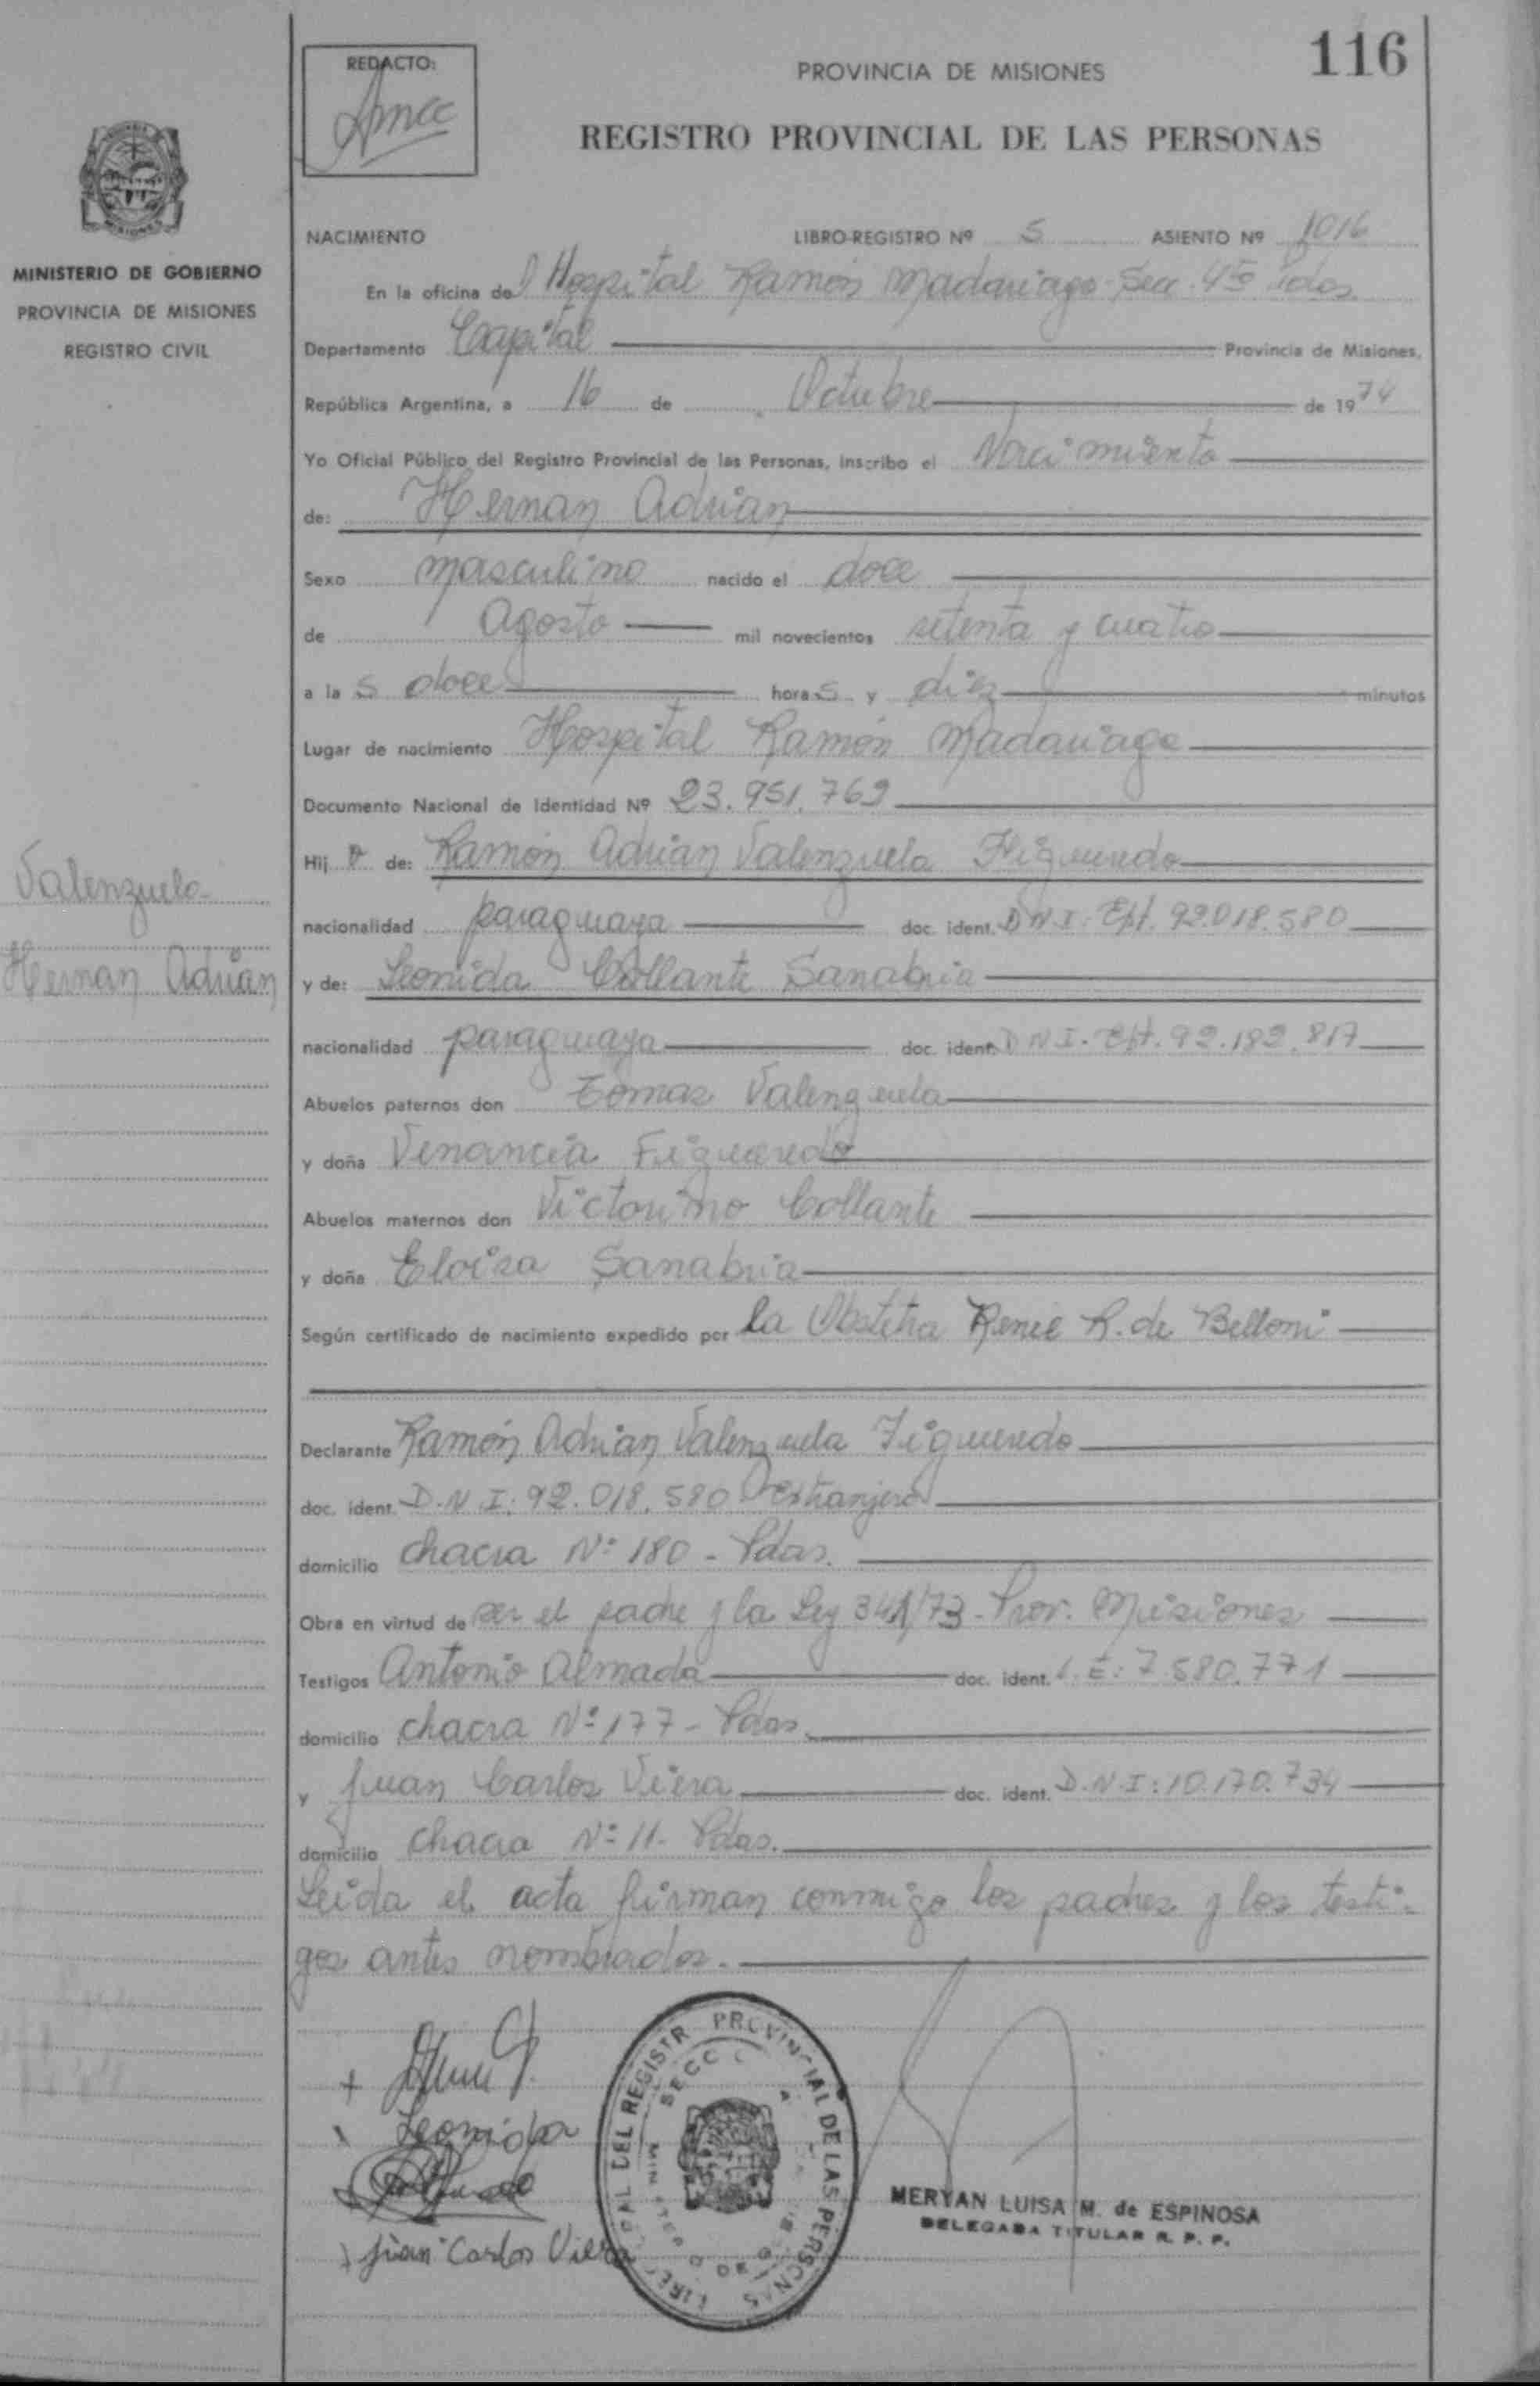 116
REDACTO:
PROVINCIA DE MISIONES
REGISTRO PROVINCIAL DE LAS PERSONAS
MINISTERIO DE GOBIERNO
PROVINCIA DE MISIONES
REGISTRO CIVIL
NACIMIENTO LIBRO-REGISTRO Nº 5 ASIENTO Nº 1016
En la oficina del Hospital Ramón Madariaga - Sec. 4ta Pdas
Departamento Capital Provincia de Misiones,
República Argentina, a 16 de Octubre de 1974
Yo Oficial Público del Registro Provincial de las Personas, inscribo el Nacimiento
de: Hernan Adrian
Sexo masculino nacido el doce
de Agosto mil novecientos setenta y cuatro
a las doce horas y diez minutos
Lugar de nacimiento Hospital Ramón Madariaga
Documento Nacional de Identidad Nº 23.951.769
Hijo de: Ramón Adrian Valenzuela Figueredo
Valenzuela
nacionalidad paraguaya doc. ident. D.N.I. Ext. 92.018.580
Hernan Adrian
y de: Leonida Collante Sanabria
nacionalidad paraguaya doc. ident. D.N.I. Ext. 92.182.817
Abuelos paternos don Tomas Valenzuela
y doña Venancia Figueredo
Abuelos maternos don Victorino Collante
y doña Eloisa Sanabria
Según certificado de nacimiento expedido por la Obstetra Renee R. de Belloni
Declarante Ramón Adrian Valenzuela Figueredo
doc. ident. D.N.I: 92.018.580 Extranjero
domicilio chacra Nº 180 - Pdas.
Obra en virtud de ser el padre y la Ley 341/73 - Prov. Misiones
Testigos Antonio Almada doc. ident. L.E: 7.580.771
domicilio chacra Nº 177 - Pdas.
y Juan Carlos Viera doc. ident. D.N.I: 10.170.734
domicilio chacra Nº 11 - Pdas.
Leida el acta firman conmigo los padres y los testi-
gos antes nombrados.
Leonida
Juan Carlos Viera
DEL REGISTR PROVINCIAL DE LAS PERSONAS
MERYAN LUISA M. de ESPINOSA
DELEGADA TITULAR R. P. P.